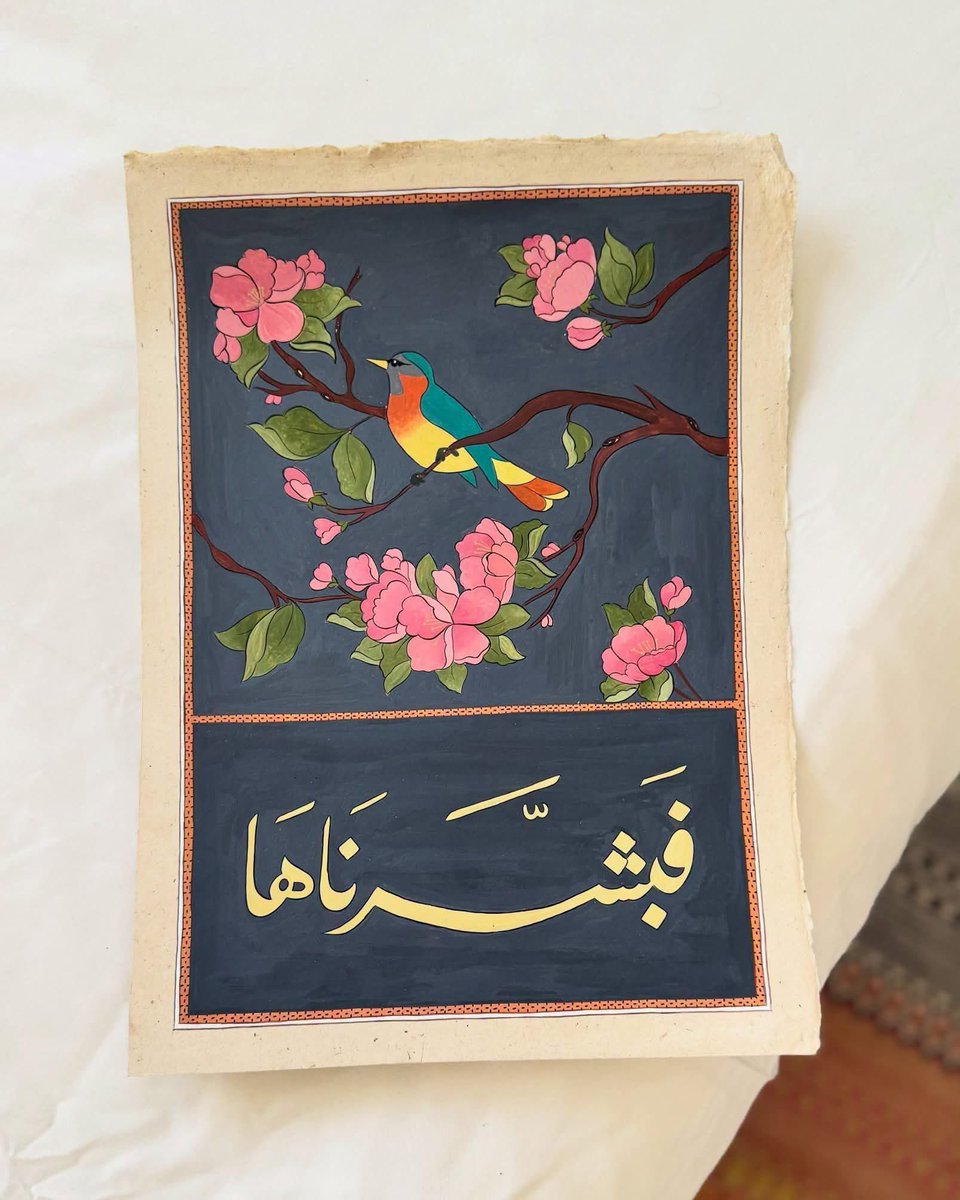 فَبَشَّرنَاهَا